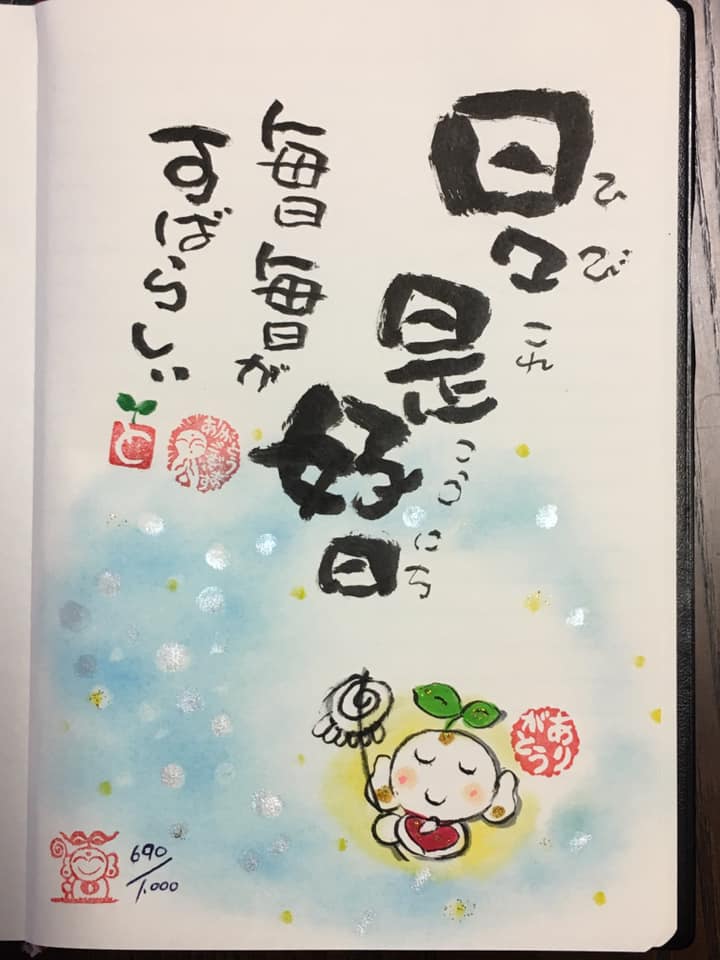 日々是好日
ひび これ こう にち
毎日毎日が
すばらしい
と
ありがとう
690/1.000